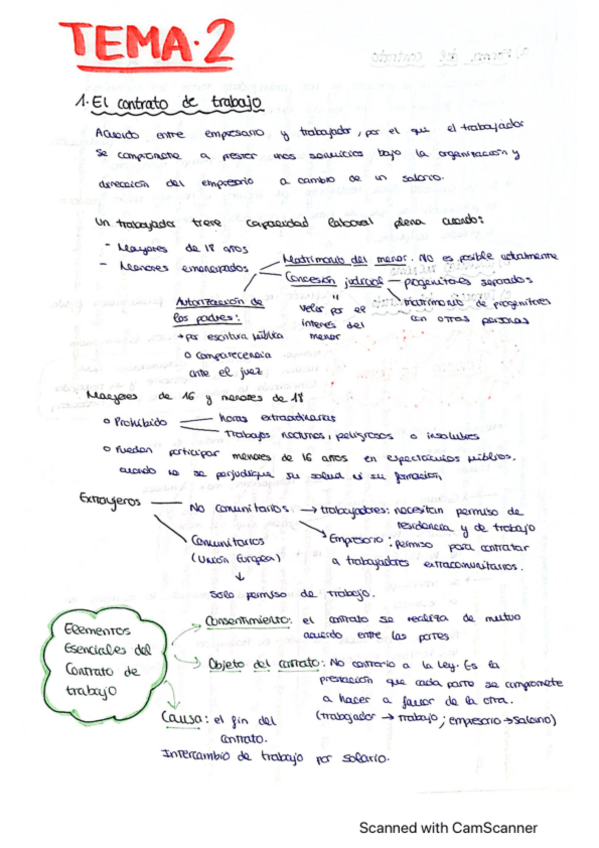 TEMA·2
1. El contrato de trabajo
Acuerdo entre empresario y trabajador, por el que el trabajador
se compromete a prestar unos servicios bajo la organización y
dirección del empresario a cambio de un salario.
Un trabajador tiene capacidad laboral plena cuando:
- Mayores de 18 años
- Menores emancipados
Matrimonio del menor. NO es posible actualmente
Concesión judicial
progenitores separados
Matrimonio de progenitores
con otras personas
"
Velar por el
interés del
menor
Autorización de
los padres:
→ por escritura pública
o comparecencia
ante el juez
Mayores de 16 y menores de 18
o Prohibido
horas extraordinarias
Trabajos nocturnos, peligrosos o insalubres
o Puedan participar menores de 16 años en espectáculos públicos,
cuando no se perjudique su salud ni su formación
Extranjeros
No comunitarios. → trabajadores: necesitan permiso de
residencia y de trabajo
Empresario: permiso para contratar
a trabajadores extracomunitarios.
Comunitarios
(Unión Europea)
↓
Solo permiso de trabajo.
Elementos
Esenciales del
Contrato de
trabajo
Consentimiento: el contrato se realiza de mutuo
acuerdo entre las partes
Objeto del contrato: No contrario a la ley. Es la
prestación que cada parte se compromete
a hacer a favor de la otra.
(trabajador → trabajo; empresario → salario)
Causa: el fin del
contrato.
Intercambio de trabajo por salario.
Scanned with CamScanner